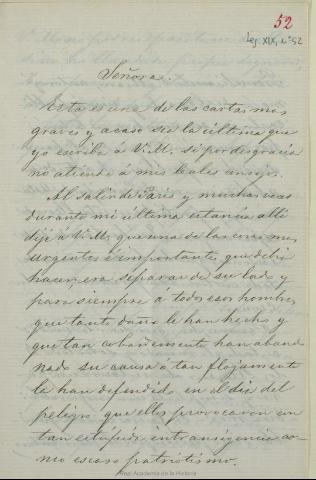 52
Leg. XIX, nº 52
Señora.
Esta es una de las cartas mas
graves y acaso sea la última que
yo escriba á V.M. si por desgracia
no atiende á mis leales consejos.
Al salir de Paris y muchas veces
durante mi última estancia allí
dije á V.M. que una de las cosas mas
urgentes é importantes que debia
hacer, era separar de su lado y
para siempre á todos esos hombres
que tanto daño le han hecho y
que tan cobardemente han aban
nado su causa ó tan flojamente
la han defendido en el dia del
peligro que ellos provocaron con
tan estúpida intransigencia co-
mo escaso patriotismo.
Real Academia de la Historia